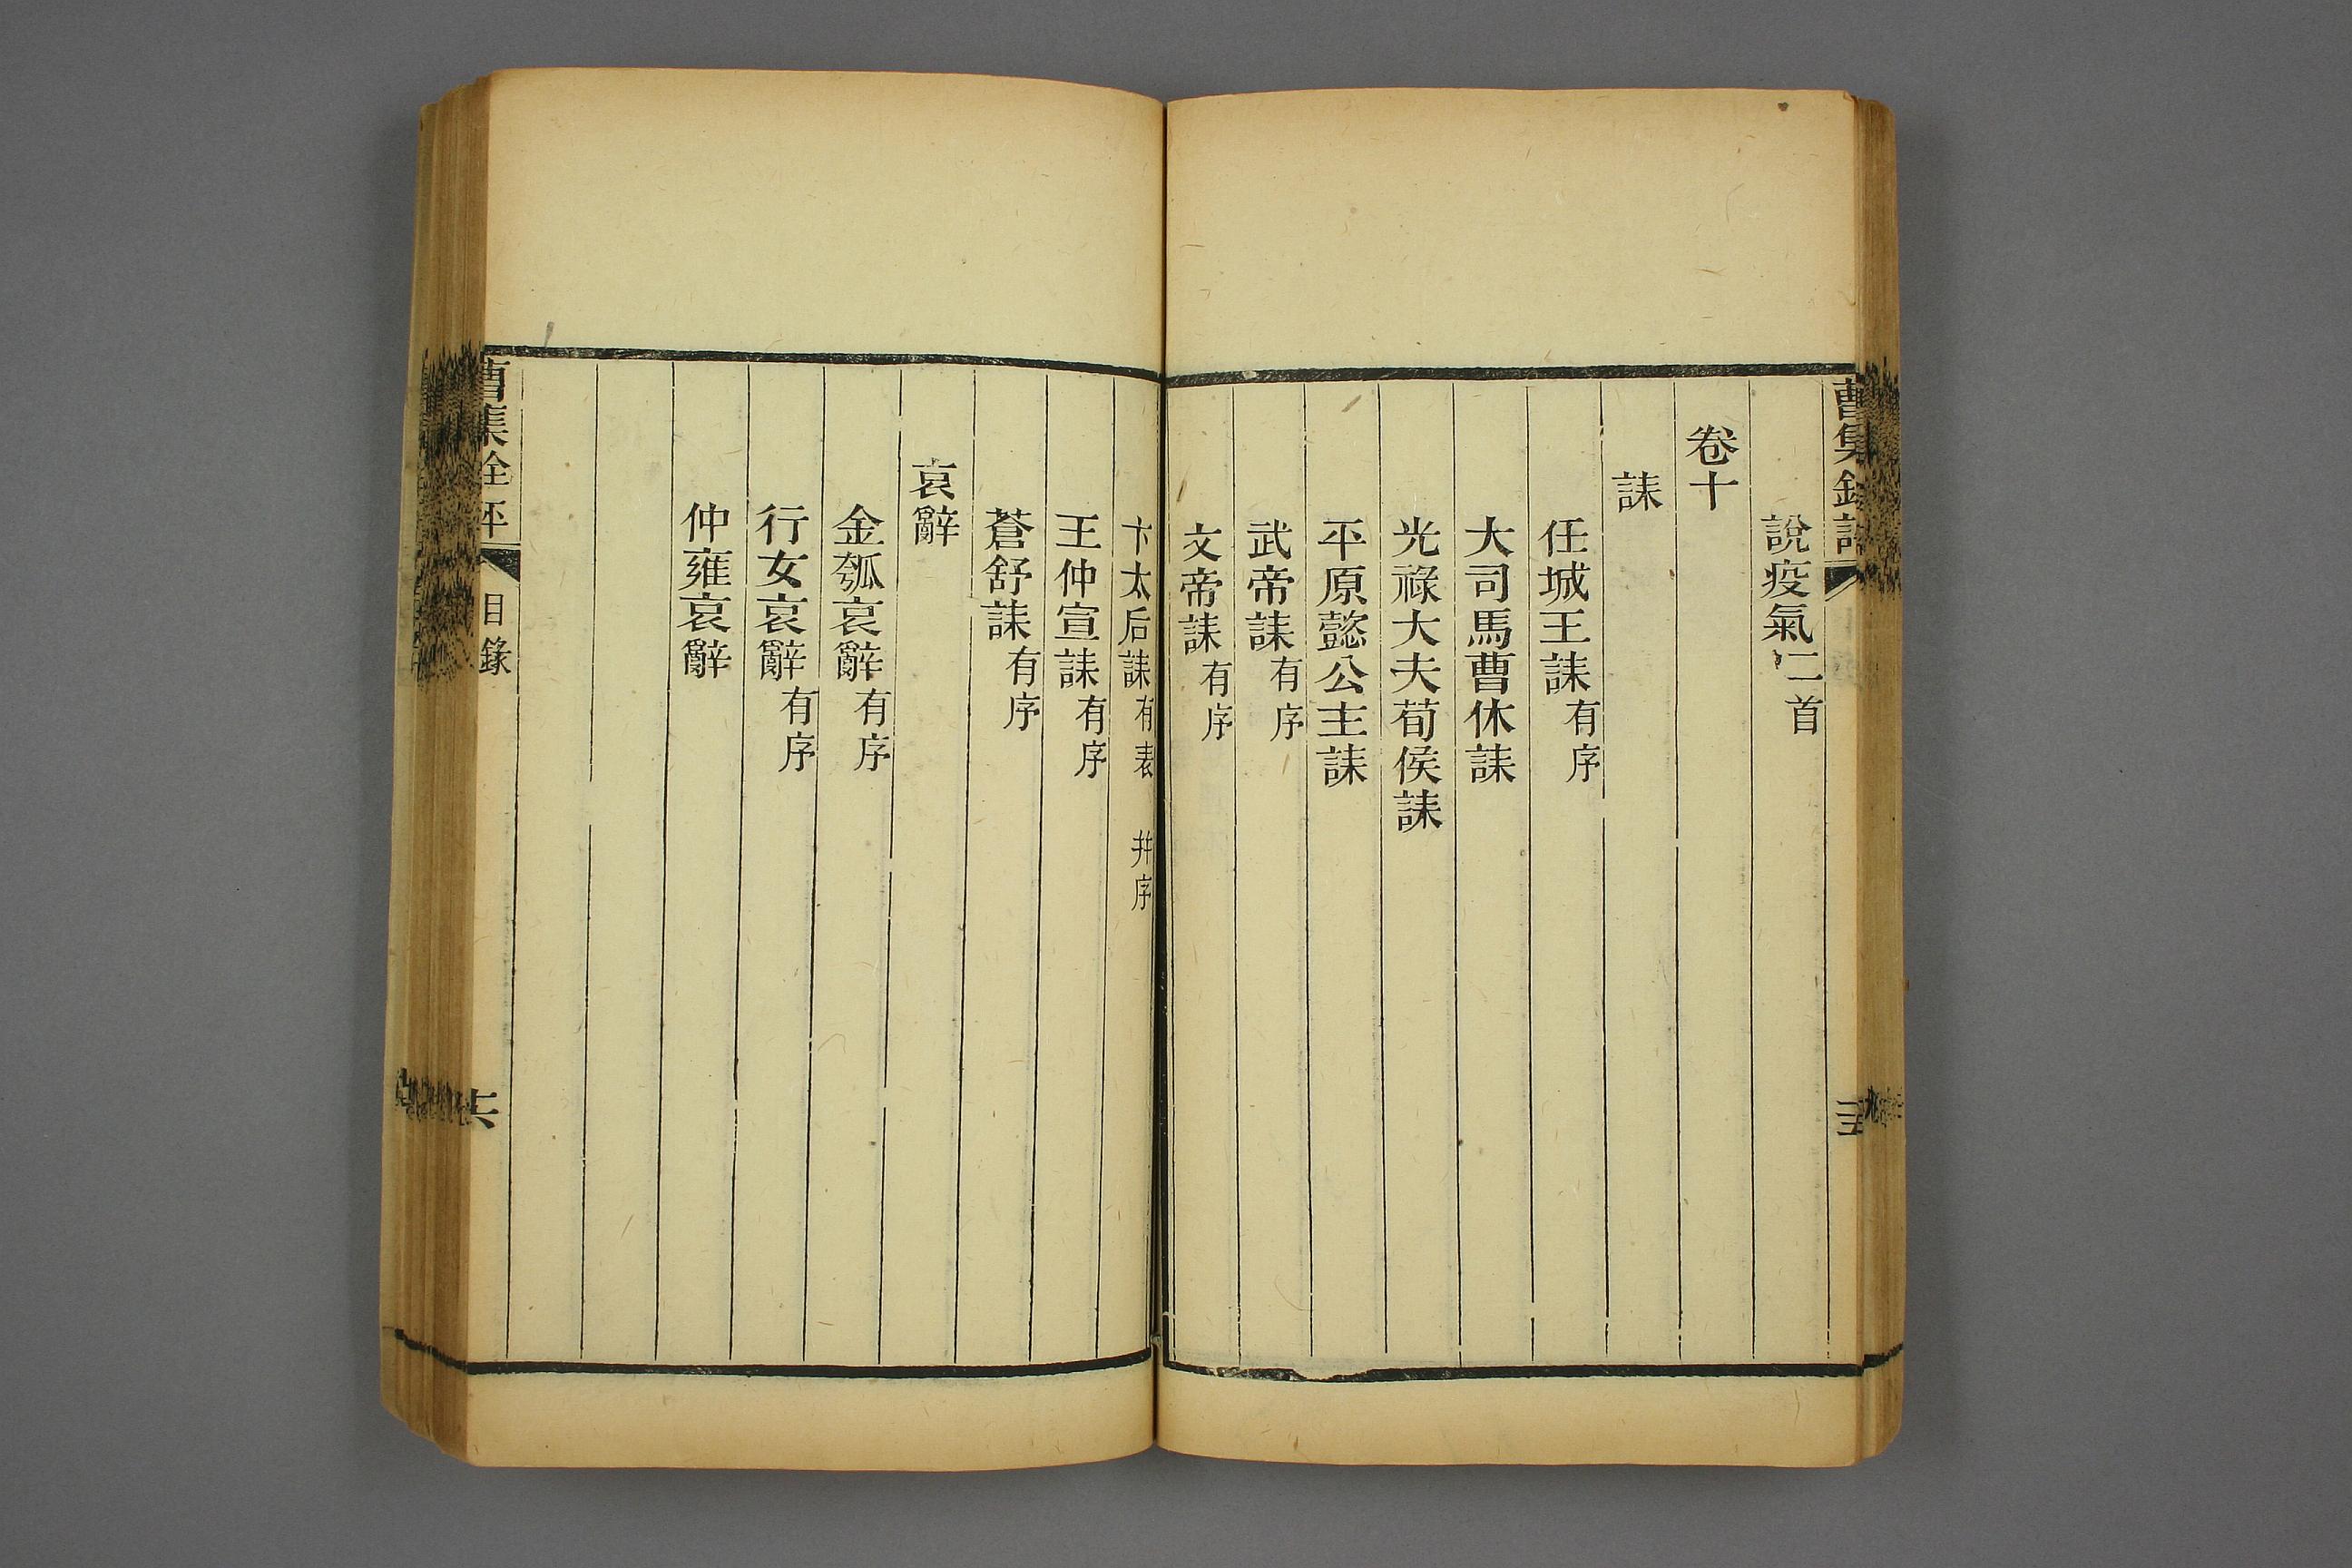 說疫氣二首
卷十
誄
任城王誄有序
大司馬曹休誄
光祿大夫荀侯誄
平原懿公主誄
武帝誄有序
文帝誄有序
卞太后誄有表 并序
王仲宣誄有序
蒼舒誄有序
哀辭
金瓠哀辭有序
行女哀辭有序
仲雍哀辭
曹集銓评
目錄